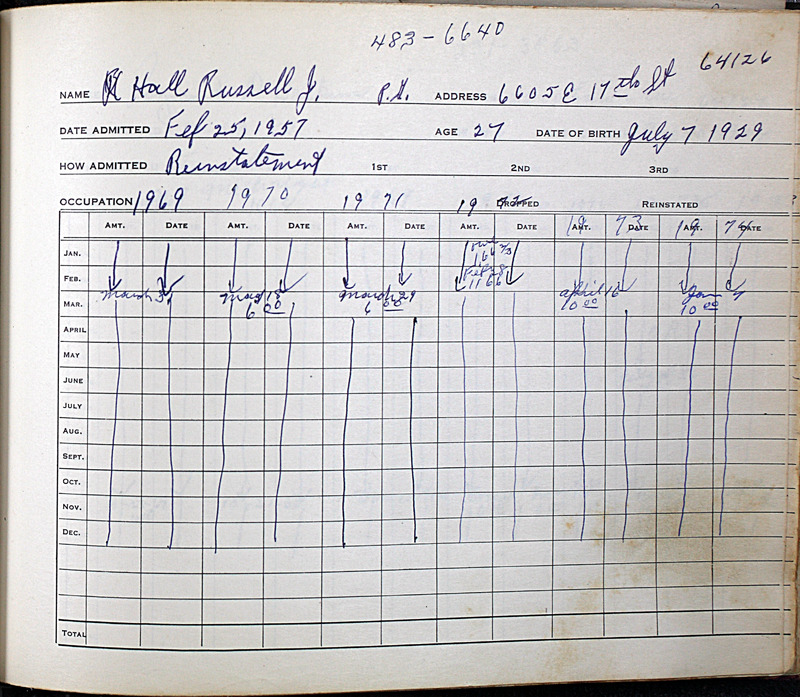 483-6640
64126
NAME Hall Russell J. P.S. ADDRESS 6605 E 17th St
DATE ADMITTED Feb 25, 1957 AGE 27 DATE OF BIRTH July 7 1929
HOW ADMITTED Reinstatement 1ST 2ND 3RD
OCCUPATION 1969 1970 1971 19 DROPPED REINSTATED
AMT. DATE AMT. DATE AMT. DATE AMT. DATE 19 AMT. 73 DATE 19 AMT. 74 DATE
JAN.
FEB. Feb 28
March 3 May 18 March 29 1166 April 16 Jan 7
MAR. 6 00 6 00 10 00 10 00
APRIL
MAY
JUNE
JULY
AUG.
SEPT.
OCT.
NOV.
DEC.
TOTAL